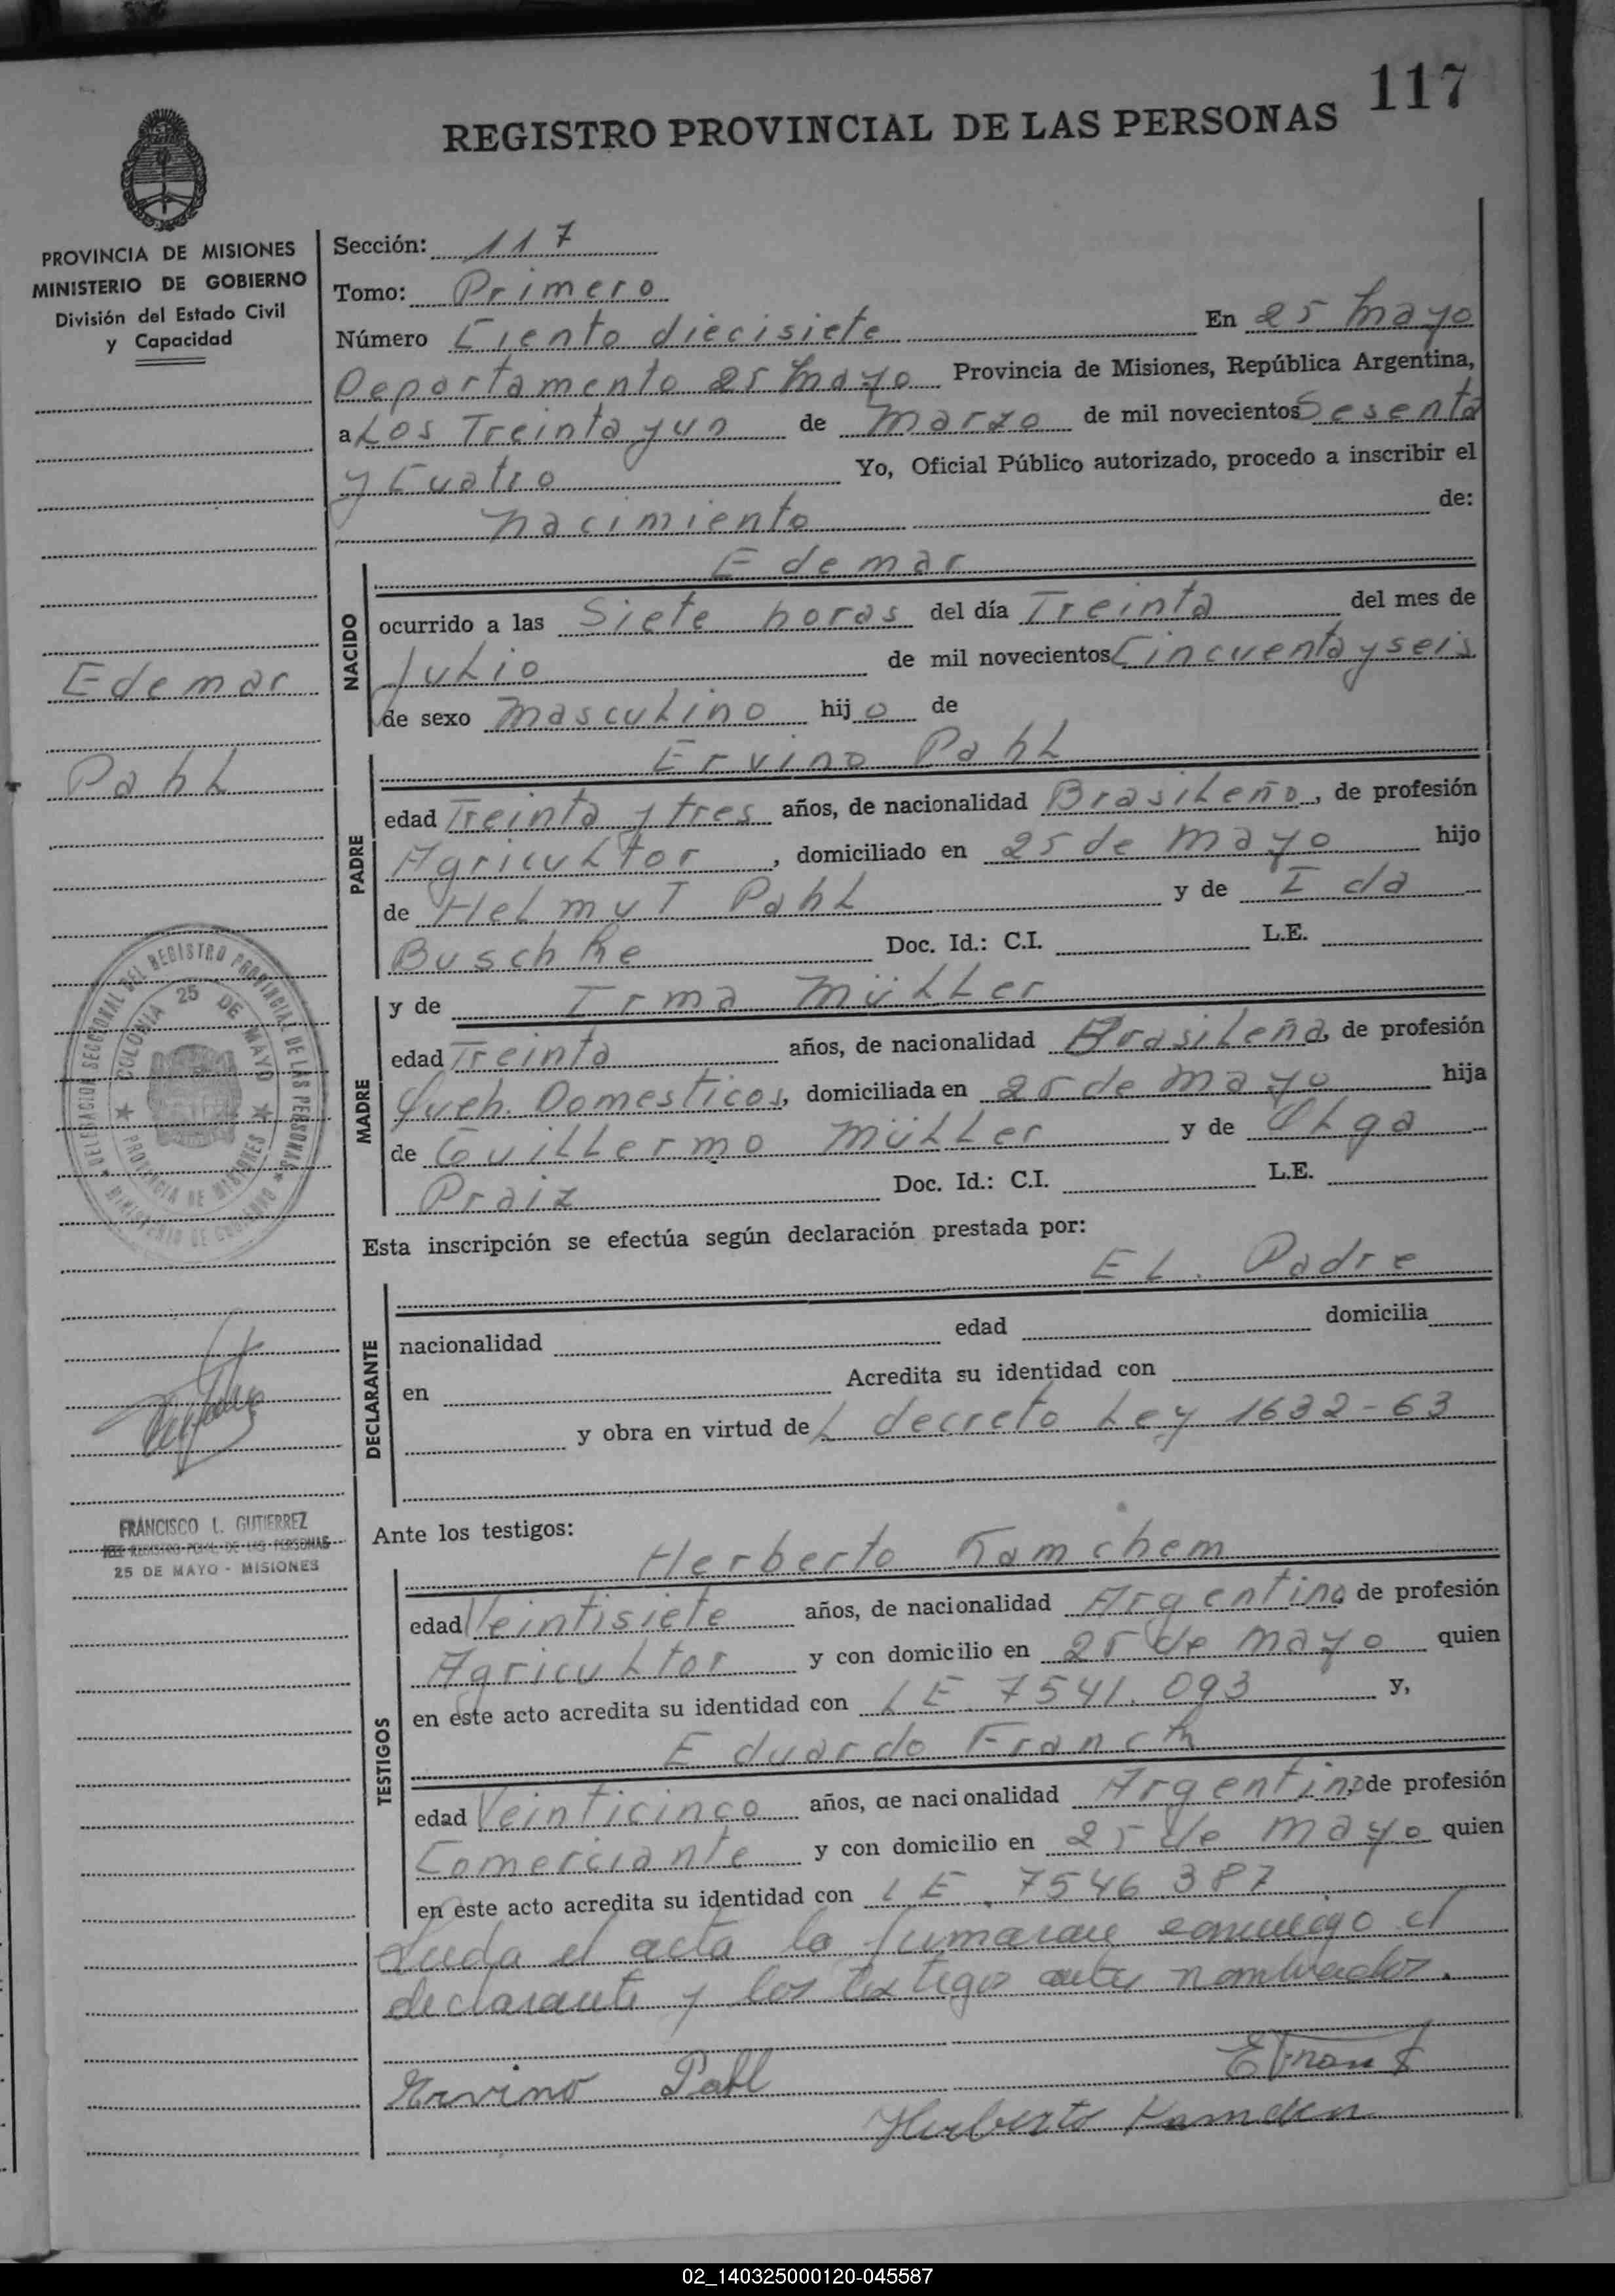 117
REGISTRO PROVINCIAL DE LAS PERSONAS
PROVINCIA DE MISIONES
MINISTERIO DE GOBIERNO
División del Estado Civil
y Capacidad
Edemar
Pahl
DELEGACION SECCIONAL DEL REGISTRO PROVINCIAL DE LAS PERSONAS
MINISTERIO DE GOBIERNO
COLONIA 25 DE MAYO
PROVINCIA DE MISIONES
FRANCISCO L. GUTIERREZ
JEFE REGISTRO PCIAL. DE LAS PERSONAS
25 DE MAYO - MISIONES
Sección: 117
Tomo: Primero
Número Ciento diecisiete En 25 Mayo
Departamento 25 Mayo Provincia de Misiones, República Argentina,
a Los Treinta y un de Marzo de mil novecientos Sesenta
y Cuatro Yo, Oficial Público autorizado, procedo a inscribir el
nacimiento de:
NACIDO
Edemar
ocurrido a las Siete horas del día Treinta del mes de
Julio de mil novecientos Cincuenta y seis
de sexo Masculino hijo de
PADRE
Ervino Pahl
edad Treinta y tres años, de nacionalidad Brasileño, de profesión
Agricultor, domiciliado en 25 de Mayo hijo
de Helmut Pahl y de Ida
Buschke Doc. Id.: C.I. L.E.
MADRE
y de Irma Müller
edad Treinta años, de nacionalidad Brasileña, de profesión
Queh. Domesticos, domiciliada en 25 de Mayo hija
de Guillermo Müller y de Olga
Praiz Doc. Id.: C.I. L.E.
Esta inscripción se efectúa según declaración prestada por:
DECLARANTE
El. Padre
nacionalidad edad domicilia
en Acredita su identidad con
y obra en virtud de L decreto Ley 1632-63
Ante los testigos:
TESTIGOS
Herberto Kamchem
edad Veintisiete años, de nacionalidad Argentino de profesión
Agricultor y con domicilio en 25 de Mayo quien
en este acto acredita su identidad con LE. 7541.093 y,
Eduardo Franck
edad Veinticinco años, de nacionalidad Argentino, de profesión
Comerciante y con domicilio en 25 de Mayo quien
en este acto acredita su identidad con LE. 7546387
Leida el acta la firmaran conmigo el
declarante y los testigos antes nombrados.
Ervino Pahl
Herberto
02_140325000120-045587